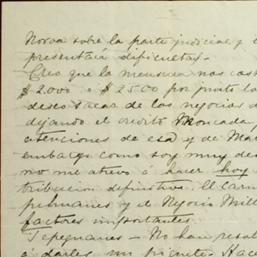 Novoa sobre la parte judicial y c
presentaría dificultas.
Creo que la mensura nos cost
$2.000 o $2500 por junto lo
deseo sacar de los negocios d
dejando el credito Moncada y
atenciones de esa y de Mar
embargo como soy muy des
no me atrevo a hacer hoy
tribucion definitiva. El Carm
y de
factores importantes.
Tepeguanes - No han resul
a darles un piquetes Hace